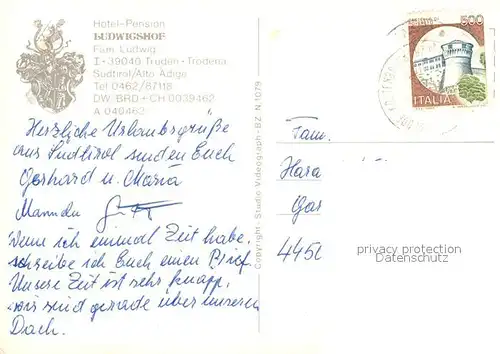 Hotel-Pension
LUDWIGSHOF
Fam. Ludwig
I-39040 Truden-Trodena
Südtirol/Alto Adige
Tel 0462/87118
DW BRD+CH 0039462
A 040462
500
ITALIA
Herzliche Urlaubsgrüße
aus Südtirol senden Euch
Gerhard u. Maria
Wenn ich einmal Zeit habe,
schreibe ich Euch einen Brief.
Unsere Zeit ist sehr knapp,
wir sind gerade über unserem
Dach.
Copyright: Studio Videograph - BZ N. 1079
Fam.
Hara
Gar
445
privacy protection
Datenschutz